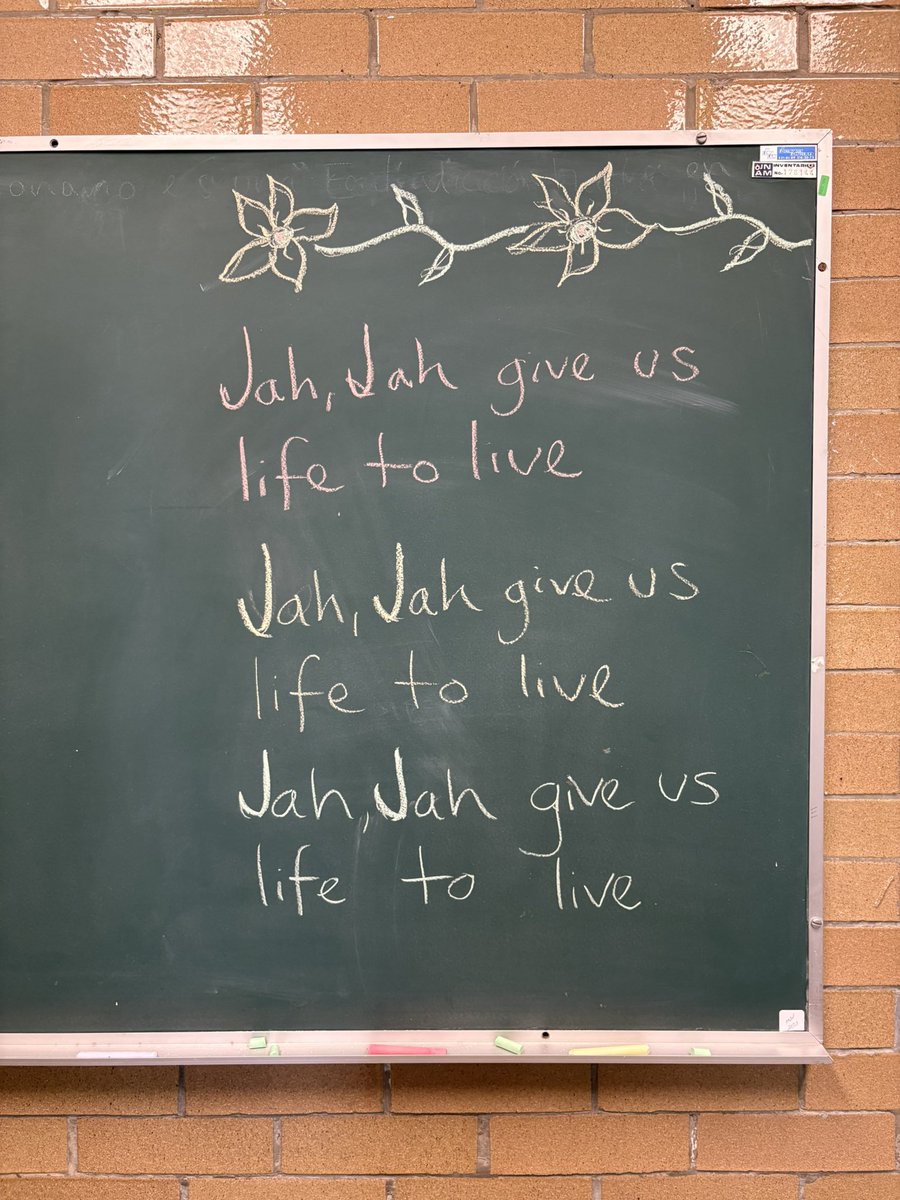 UN
AM
INVENTARIO
No.
Jah, Jah give us
life to live
Jah, Jah give us
life to live
Jah, Jah give us
life to live